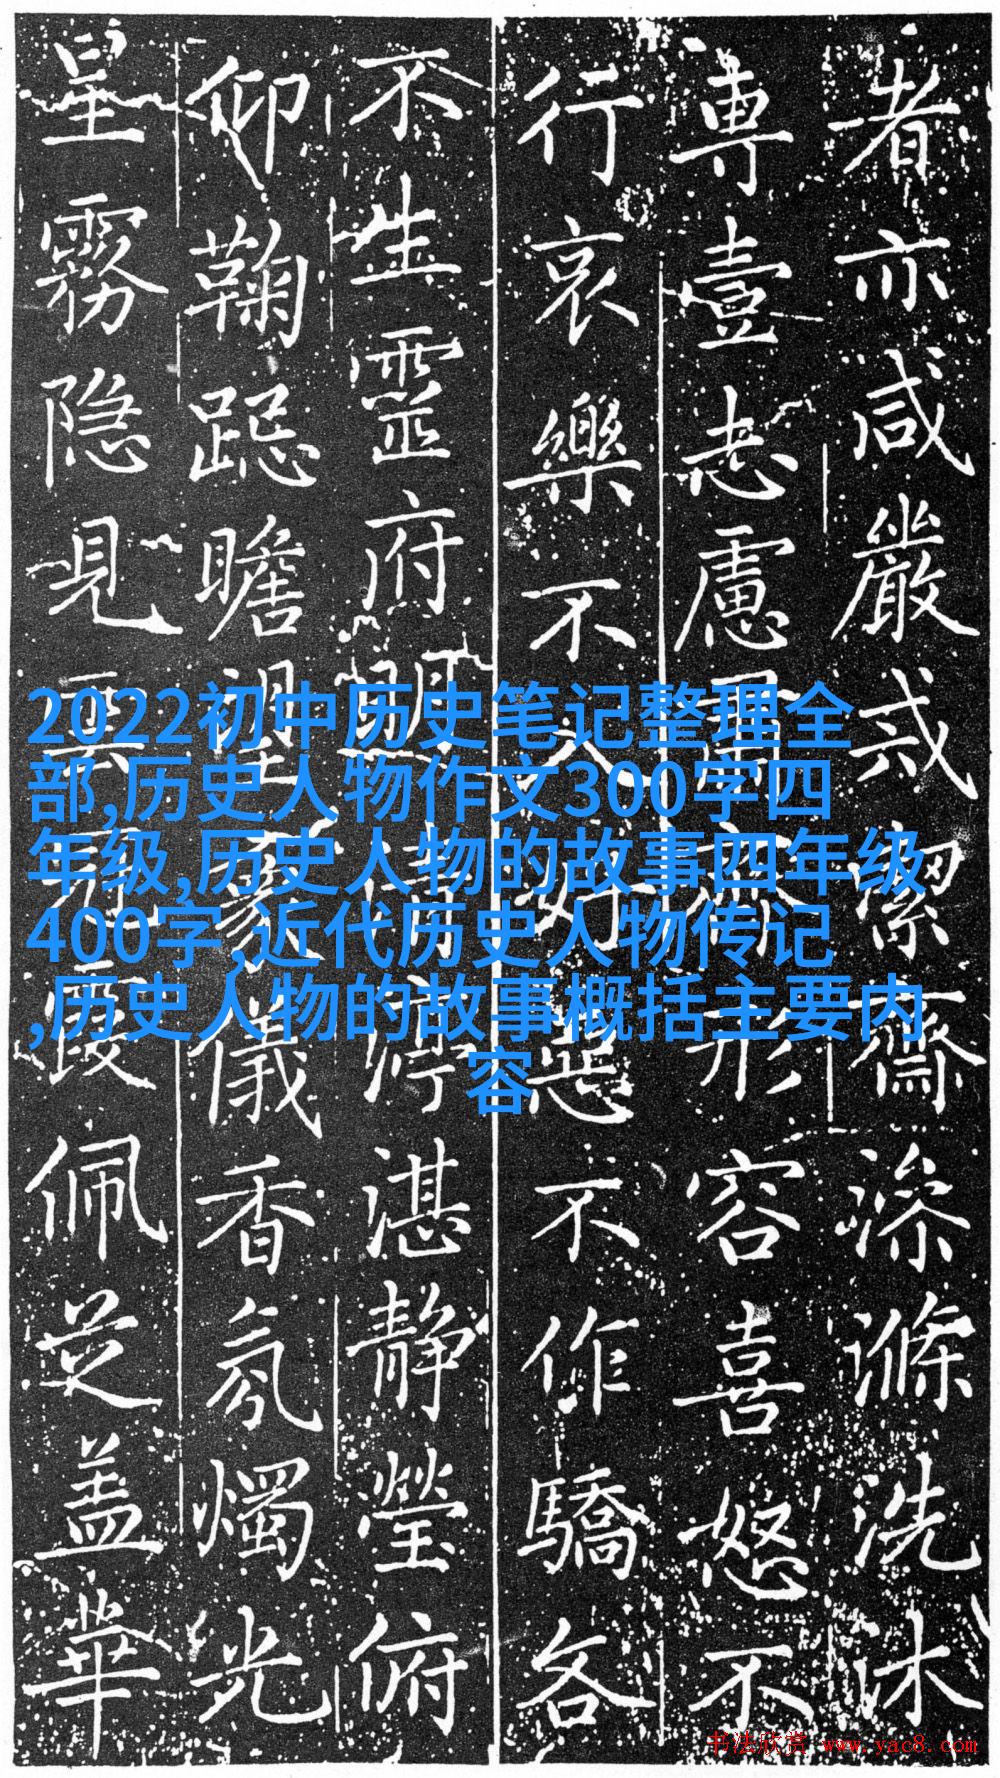 者亦咸嚴戒潔齋滌洗沐
專壹志慮齋形容喜怒不
行哀樂不入好惡不作驕各
不生靈府明情湛靜瑩俯
仰鞠跽瞻望儀香氛燭光
星霧隐見雲霞佩芝盖華
2022初中历史笔记整理全
部,历史人物作文300字四
年级,历史人物的故事四年级
400字,近代历史人物传记
,历史人物的故事概括主要内
容
书法欣赏 www.yac8.com